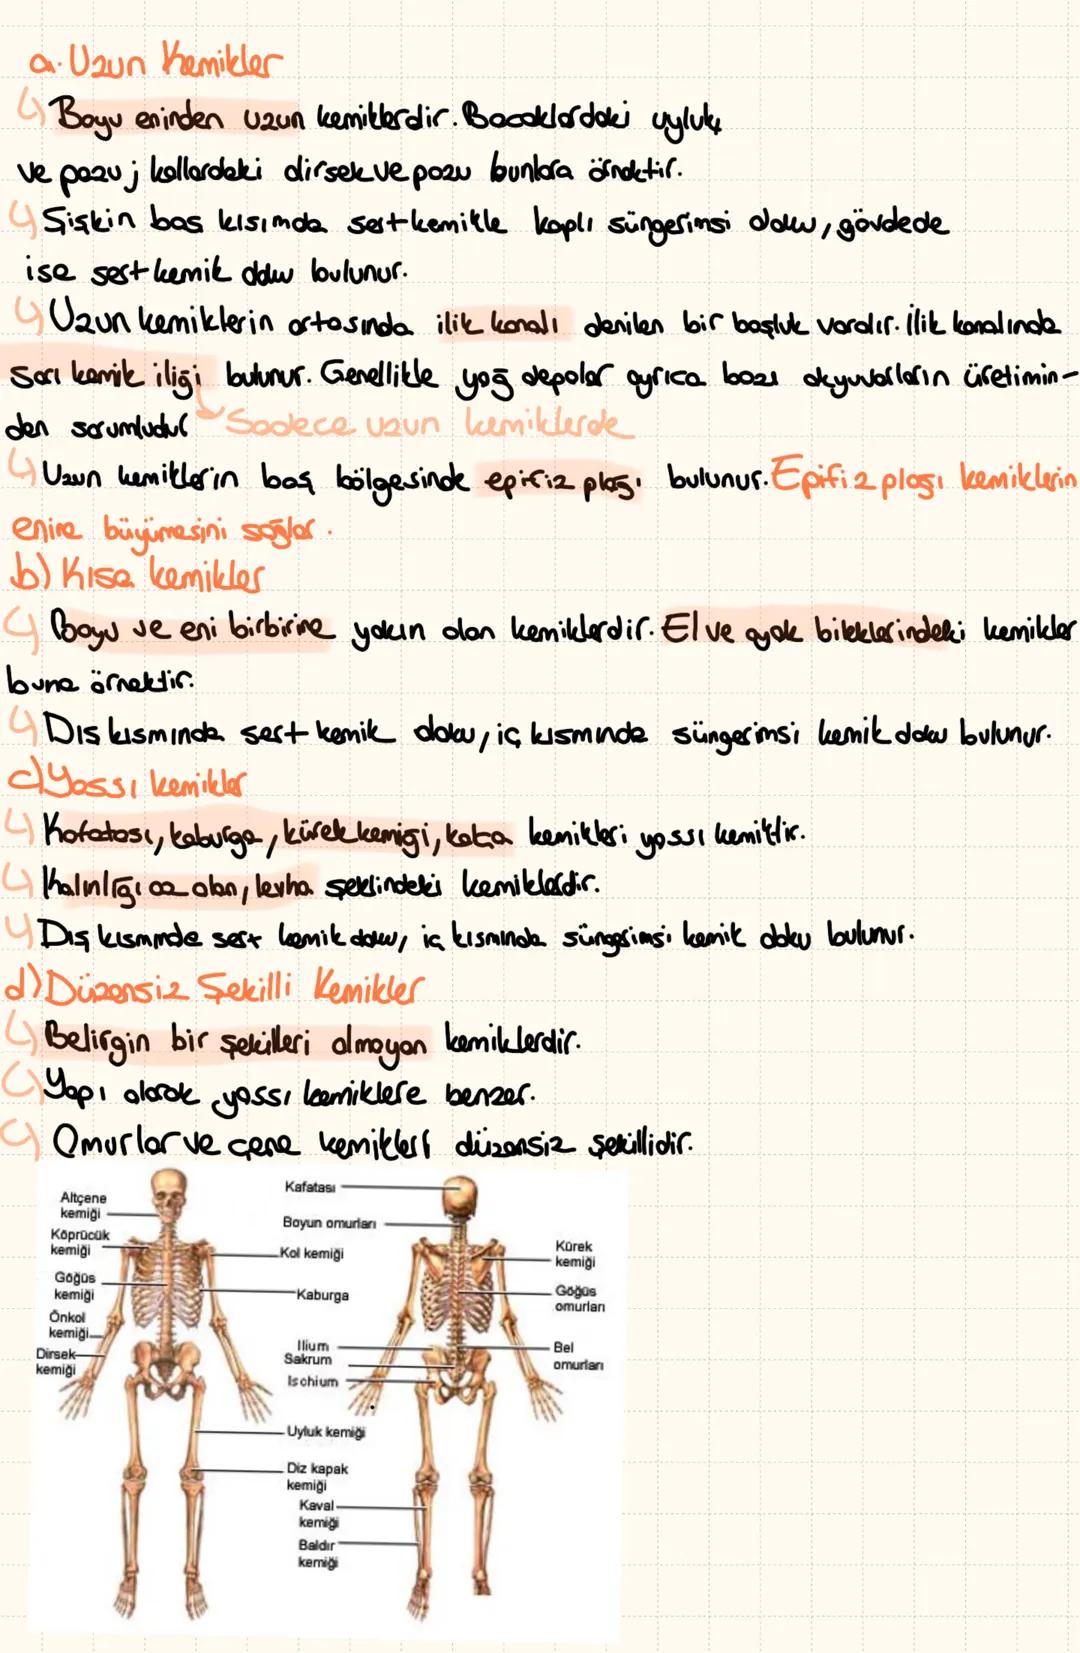 a. Uzun Kemikler
↳ Boyu eninden uzun kemiklerdir. Bacaklardaki uyluk,
ve pazu; kollardaki dirsek ve pazu bunlara örnektir.
↳ Şişkin baş kısımda sert kemikle kaplı süngerimsi doku, gövdede
ise sert kemik doku bulunur.
↳ Uzun kemiklerin ortasında ilik kanalı denilen bir boşluk vardır. İlik kanalında
Sarı kemik iliği bulunur. Genellikle yağ depolar ayrıca bazı akyuvarların üretimin-
den sorumludur Sadece uzun kemiklerde
↳ Uzun kemiklerin baş bölgesinde epifiz plağı bulunur. Epifiz plağı kemiklerin
enine büyümesini sağlar.
b) Kısa kemikler
↳ Boyu ve eni birbirine yakın olan kemiklerdir. El ve ayak bileklerindeki kemikler
buna örnektir.
↳ Dış kısmında sert kemik doku, iç kısmında süngerimsi kemik doku bulunur.
c) Yassı kemikler
↳ Kafatası, kaburga, kürek kemiği, kalça kemikleri yassı kemiktir.
↳ Kalınlığı az olan, levha şeklindeki kemiklerdir.
↳ Dış kısmında sert kemik doku, iç kısmında süngerimsi kemik doku bulunur.
d) Düzensiz Şekilli Kemikler
↳ Belirgin bir şekilleri olmayan kemiklerdir.
↳ Yapı olarak yassı kemiklere benzer.
↳ Omurlar ve çene kemikleri düzensiz şekillidir.
Altçene
kemiği
Köprücük
kemiği
Göğüs
kemiği
Önkol
kemiği
Dirsek
kemiği
Kafatası
Boyun omurları
Kol kemiği
Kaburga
Ilium
Sakrum
Ischium
Uyluk kemiği
Diz kapak
kemiği
Kaval
kemiği
Baldır
kemiği
Kürek
kemiği
Göğüs
omurları
Bel
omurları